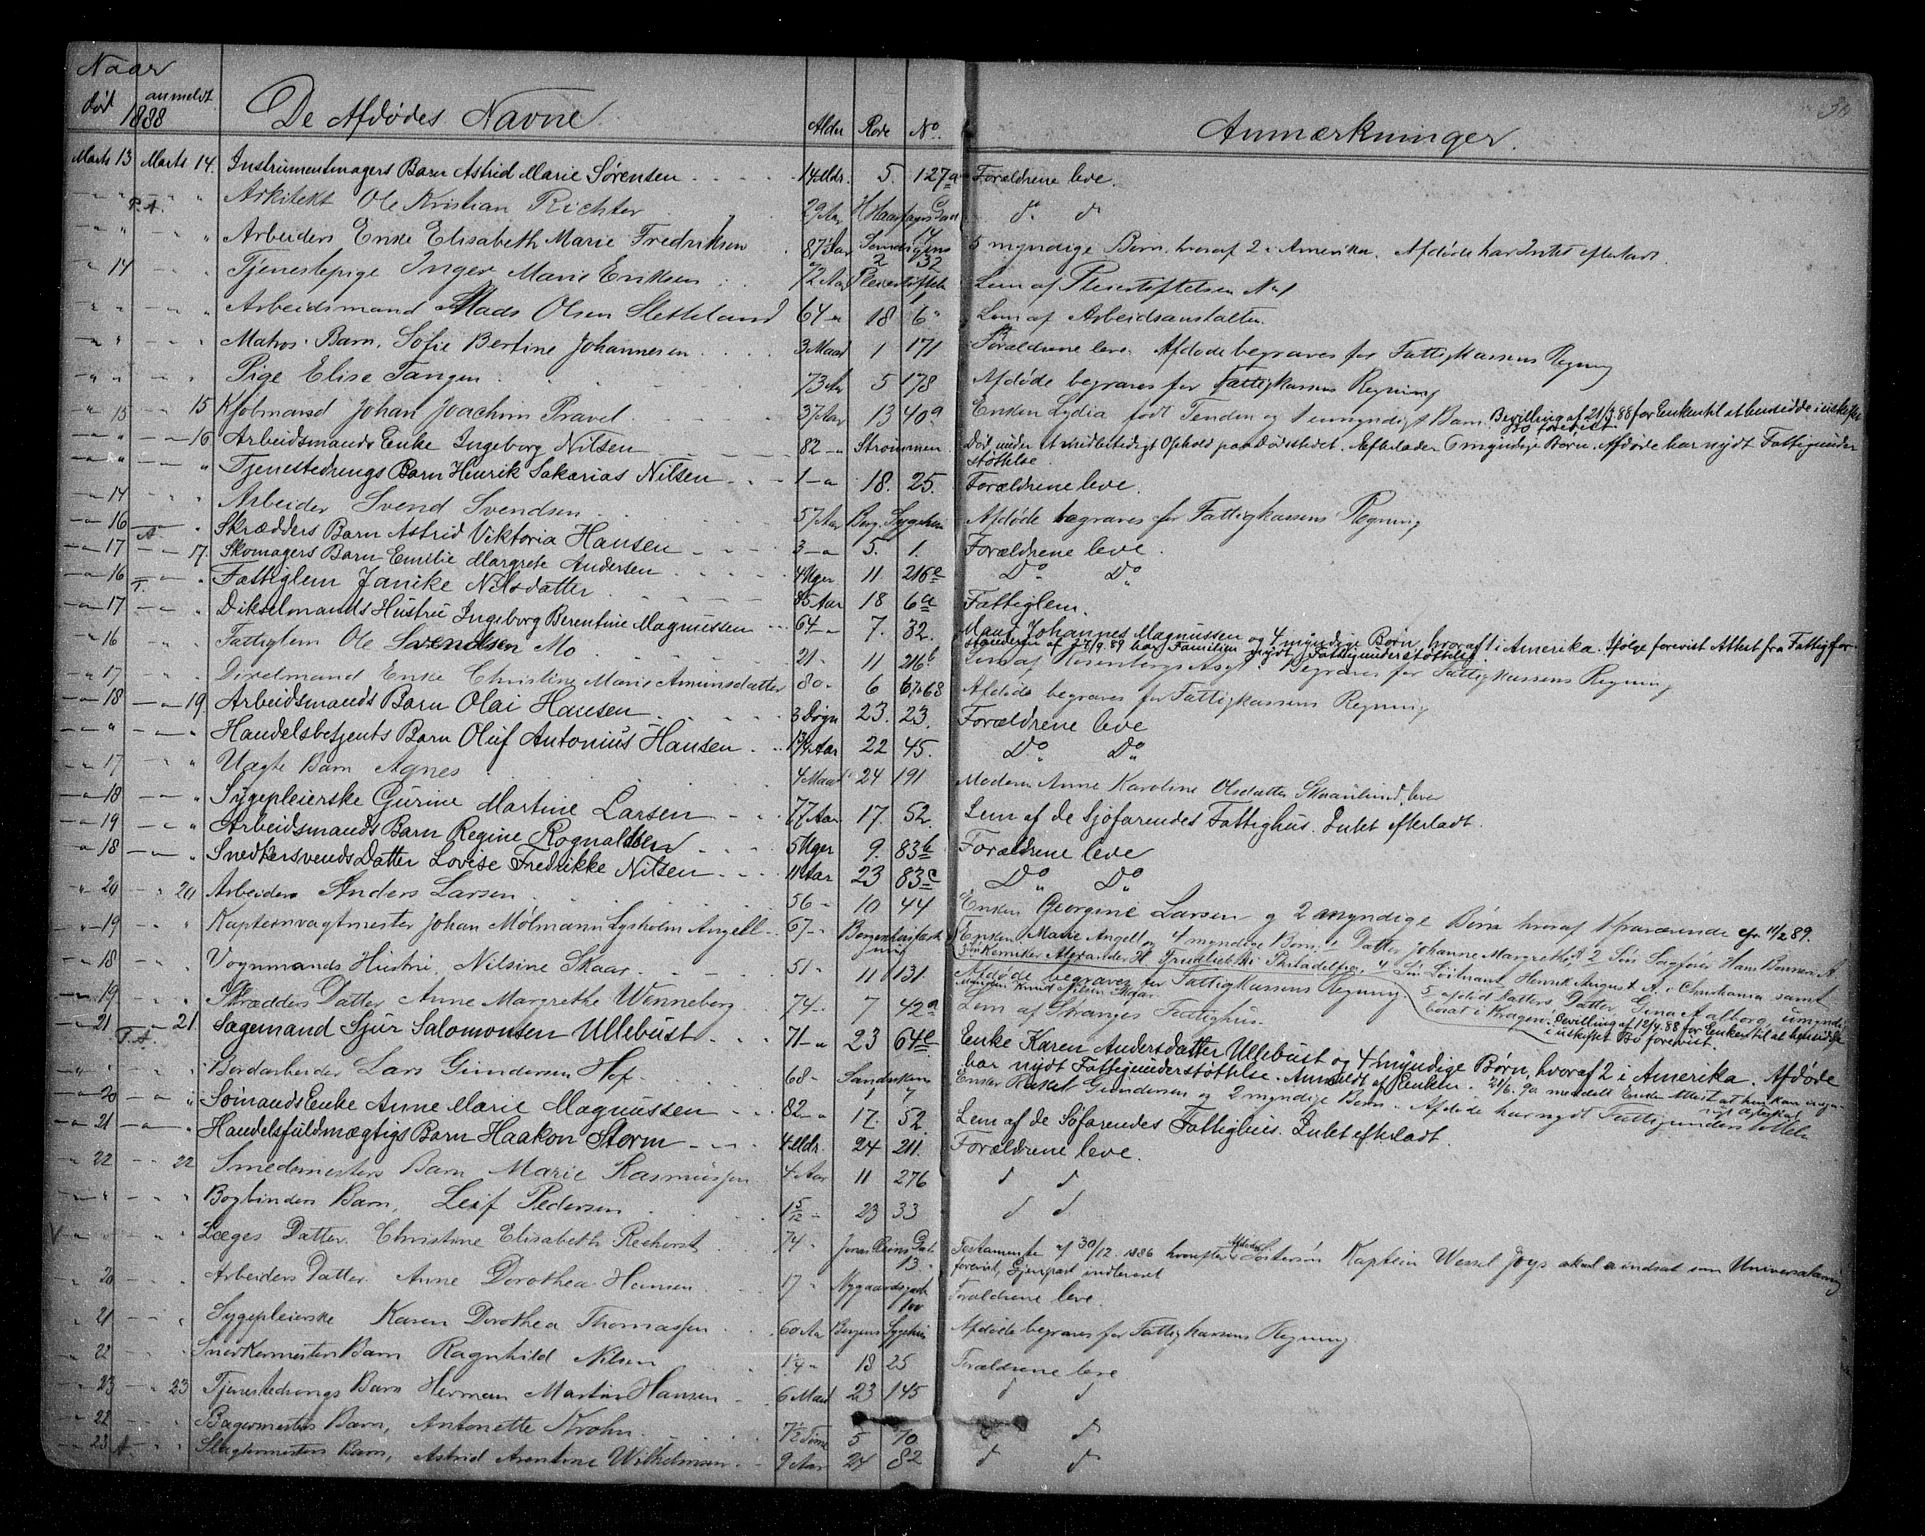 Naar
død anmeldt 1888 De Afdødes Navne Alder Rode No Anmærkninger. 30
Marts 13 Marts 14. Instrumentmagers Barn Astrid Marie Sørensen 14 Mdr. 5. 127a Forældrene leve.
" " P.A. " Arkitekt Ole Kristian Richter 29 Aar H Haarfagrs Gad 14 do do
" " " Arbeiders Enke Elisabeth Marie Fredriksen 87 Aar 2 32 5 myndige Børn, hvoraf 2 i Amerika. Afdøde har Intet efterladt.
" 14 " " Tjenestepige Inger Marie Eriksen 72 Aar Plesestiftels 1 Lem af Plesestiftelsen No 1
" " " " Arbeidsmand Mads Olsen Sletteland 64 " 18 6 " Lem af Arbeidsanstalten.
" " " " Matros Barn, Sofie Bertine Johannesen 3 Maad 1 171 Forældrene leve. Afdøde begraves for Fattigkassens Regning
" " " " Pige Elise Tangen 73 Aar 5 178 Afdøde begraves for Fattigkassens Regning
" 15 " 15 Kjøbmand Johan Joachim Pravel 37 Aar 13 40a Enken Lydia født Tenden og 1 umyndigt Barn. Bevilling af 21/3 88 for Enken til at hensidde i uskiftet
Bo forevist.
" " " 16 Arbeidsmands Enke Ingeborg Nilsen 82 " Strømmen. Død under et midlertidigt Ophold paa Dødsstedet. Efterlader 6 myndige Børn. Afdøde har nydt Fattigunder
støttelse.
" " " " Tjenestedrengs Barn Henrik Sakarias Nilsen 1 " 18. 25. Forældrene leve.
" 14 " " Arbeider Svend Svendsen 57 Aar Berg. Sygehus Afdøde begraves for Fattigkassens Regning
" 16 A. " Skrædders Barn Astrid Viktoria Hansen 3 " 5. 1. Forældrene leve.
" 17 " 17. Skomagers Barn Emilie Margrete Andersen 4 Uger 11 216e Do Do
" 16 T. " Fattiglem Janike Nilsdatter 85 Aar 18 6a Fattiglem.
" 17 " " Dikselmands Hustru Ingeborg Berentine Magnussen 64 " 7. 32. Mand Johannes Magnussen og 4 myndige Børn, hvoraf 1 i Amerika. Ifølge forevist Attest fra Fattigfor-
standeren af 27/9.89 har Familien nydt Fattigunderstøttelse.
" 16 " " Fattiglem Ole Svendsen Mo 21 " 11 216b Lem af Rosenbergs Asyl. Begraves for Fattigkassens Regning
" 17 " " Dixelmand Enke Christine Marie Amundsdatter 80 " 6 67a68 Afdøde begraves for Fattigkassens Regning
" 18 " 19. Arbeidsmands Barn Olai Hansen 3 Døgn 23. 23. Forældrene leve
" " " " Handelsbetjents Barn Oluf Antonius Hansen 1¾ Aar 22 45. Do Do
" 17 " " Uægte Barn Agnes 4 Maad 24 191 Moderen Anne Karoline Olsdatter Skaanlund, lever
" 18 " " Sygepleierske Gurine Martine Larsen 77 Aar 17. 52. Lem af de Sjøfarendes Fattighus. Intet efterladt.
" 19 " " Arbeidsmands Barn Regine Rognaldsen 5 Uger 9. 83b Forældrene leve
" 18 " " Snedkersvends Datter Lovise Fredrikke Nilsen 11 Aar 23 83c Do Do
" 20 " 20 Arbeider Anders Larsen 56 " 10 44 Enken Georgine Larsen og 2 myndige Børn hvoraf 1 fraværende cfr 11/2 89.
" 19 " " Kapteinvagtmester Johan Mølmann Lysholm Angell 67 " Bergenhusfæst ning Enken Marie Angell og 4 myndige Børn, 1 Datter Johanne Margrethe, 2 Søn Sagfører Hans Bonsen A.
3 Kemiker Alexander H. Trudliebski Philadelfia, 4 Søn Løitnant Henrik August A. i Christiania samt
" 18 " " Vognmands Hustru, Nilsine Skaar 51 " 11 131 Afdøde begraves for Fattigkassens Regning. 5 afdød Datters Datter Gina Aalborg, umyndig
Manden Knud Nilsen Skaar bosat i Kragerø. Bevilling af 12/4.88 for Enken til at hensidde
i uskiftet Bo forevist.
" 19 " " Skrædders Datter Anne Margrethe Wenneberg 74 " 7 42a Lem af Stranges Fattighus.
" 21 T.A. 21. Sagemand Sjur Salomonsen Ullebust 71 " 23 64e Enke Karen Andersdatter Ullebust og 4 myndige Børn, hvoraf 2 i Amerika. Afdøde
har nydt Fattigunderstøttelse. Anmeldt af Enken. 21/6.90 meddelt Enken Attest at hun kan
" " " " Bordarbeider Lars Gundersen Hof 68 " Sandviken 1 7 Enken Gundersen og 2 myndige Børn. Afdøde har nydt Fattigunderstøttelse
" 20 " " Sømands Enke Anne Marie Magnussen 82 " 17. 52. Lem af de Søfarendes Fattighus. Intet efterladt.
" 21 " " Handelsfuldmægtigs Barn Haakon Storm 4 Mdr. 24 211. Forældrene leve.
" 22 " 22 Smedmesters Barn Marie Rasmussen 4 Aar 11 276 do do
" " " " Bogbinders Barn, Leif Pedersen 1 5/12 " 23 33 do do
V " " " " Læges Datter Christine Elisabeth Rechorst 74 " Jonas Reins Gade 13. Testamente af 30/12 1886 hvorefter Afdødes Søstersøn Kaptein Wessel Joys skal være indsat som Universalarving
forevist, Gjenpart indleveret
" 20 " " Arbeiders Datter Anne Dorothea Hansen 17 " Nygaardsgade 100 Forældrene leve.
" 21 " " Sygepleierske Karen Dorothea Thomassen 60 Aar Bergens Sygehus Afdøde begraves for Fattigkassens Regning.
" 22 " " Snedkermesters Barn Ragnhild Nilsen 1¼ " 18 25 Forældrene leve
" 23 " 23 Tjenestedrengs Barn Herman Martin Hansen 6 Maad 23 145 do do
" 22 " " Bagermesters Barn, Antonette Krohn 7½ Time 5 70 do do
" 23 A. " Slagtermesters Barn, Astrid Arentine Wilhelmsen 9 Aar 24 82 do do